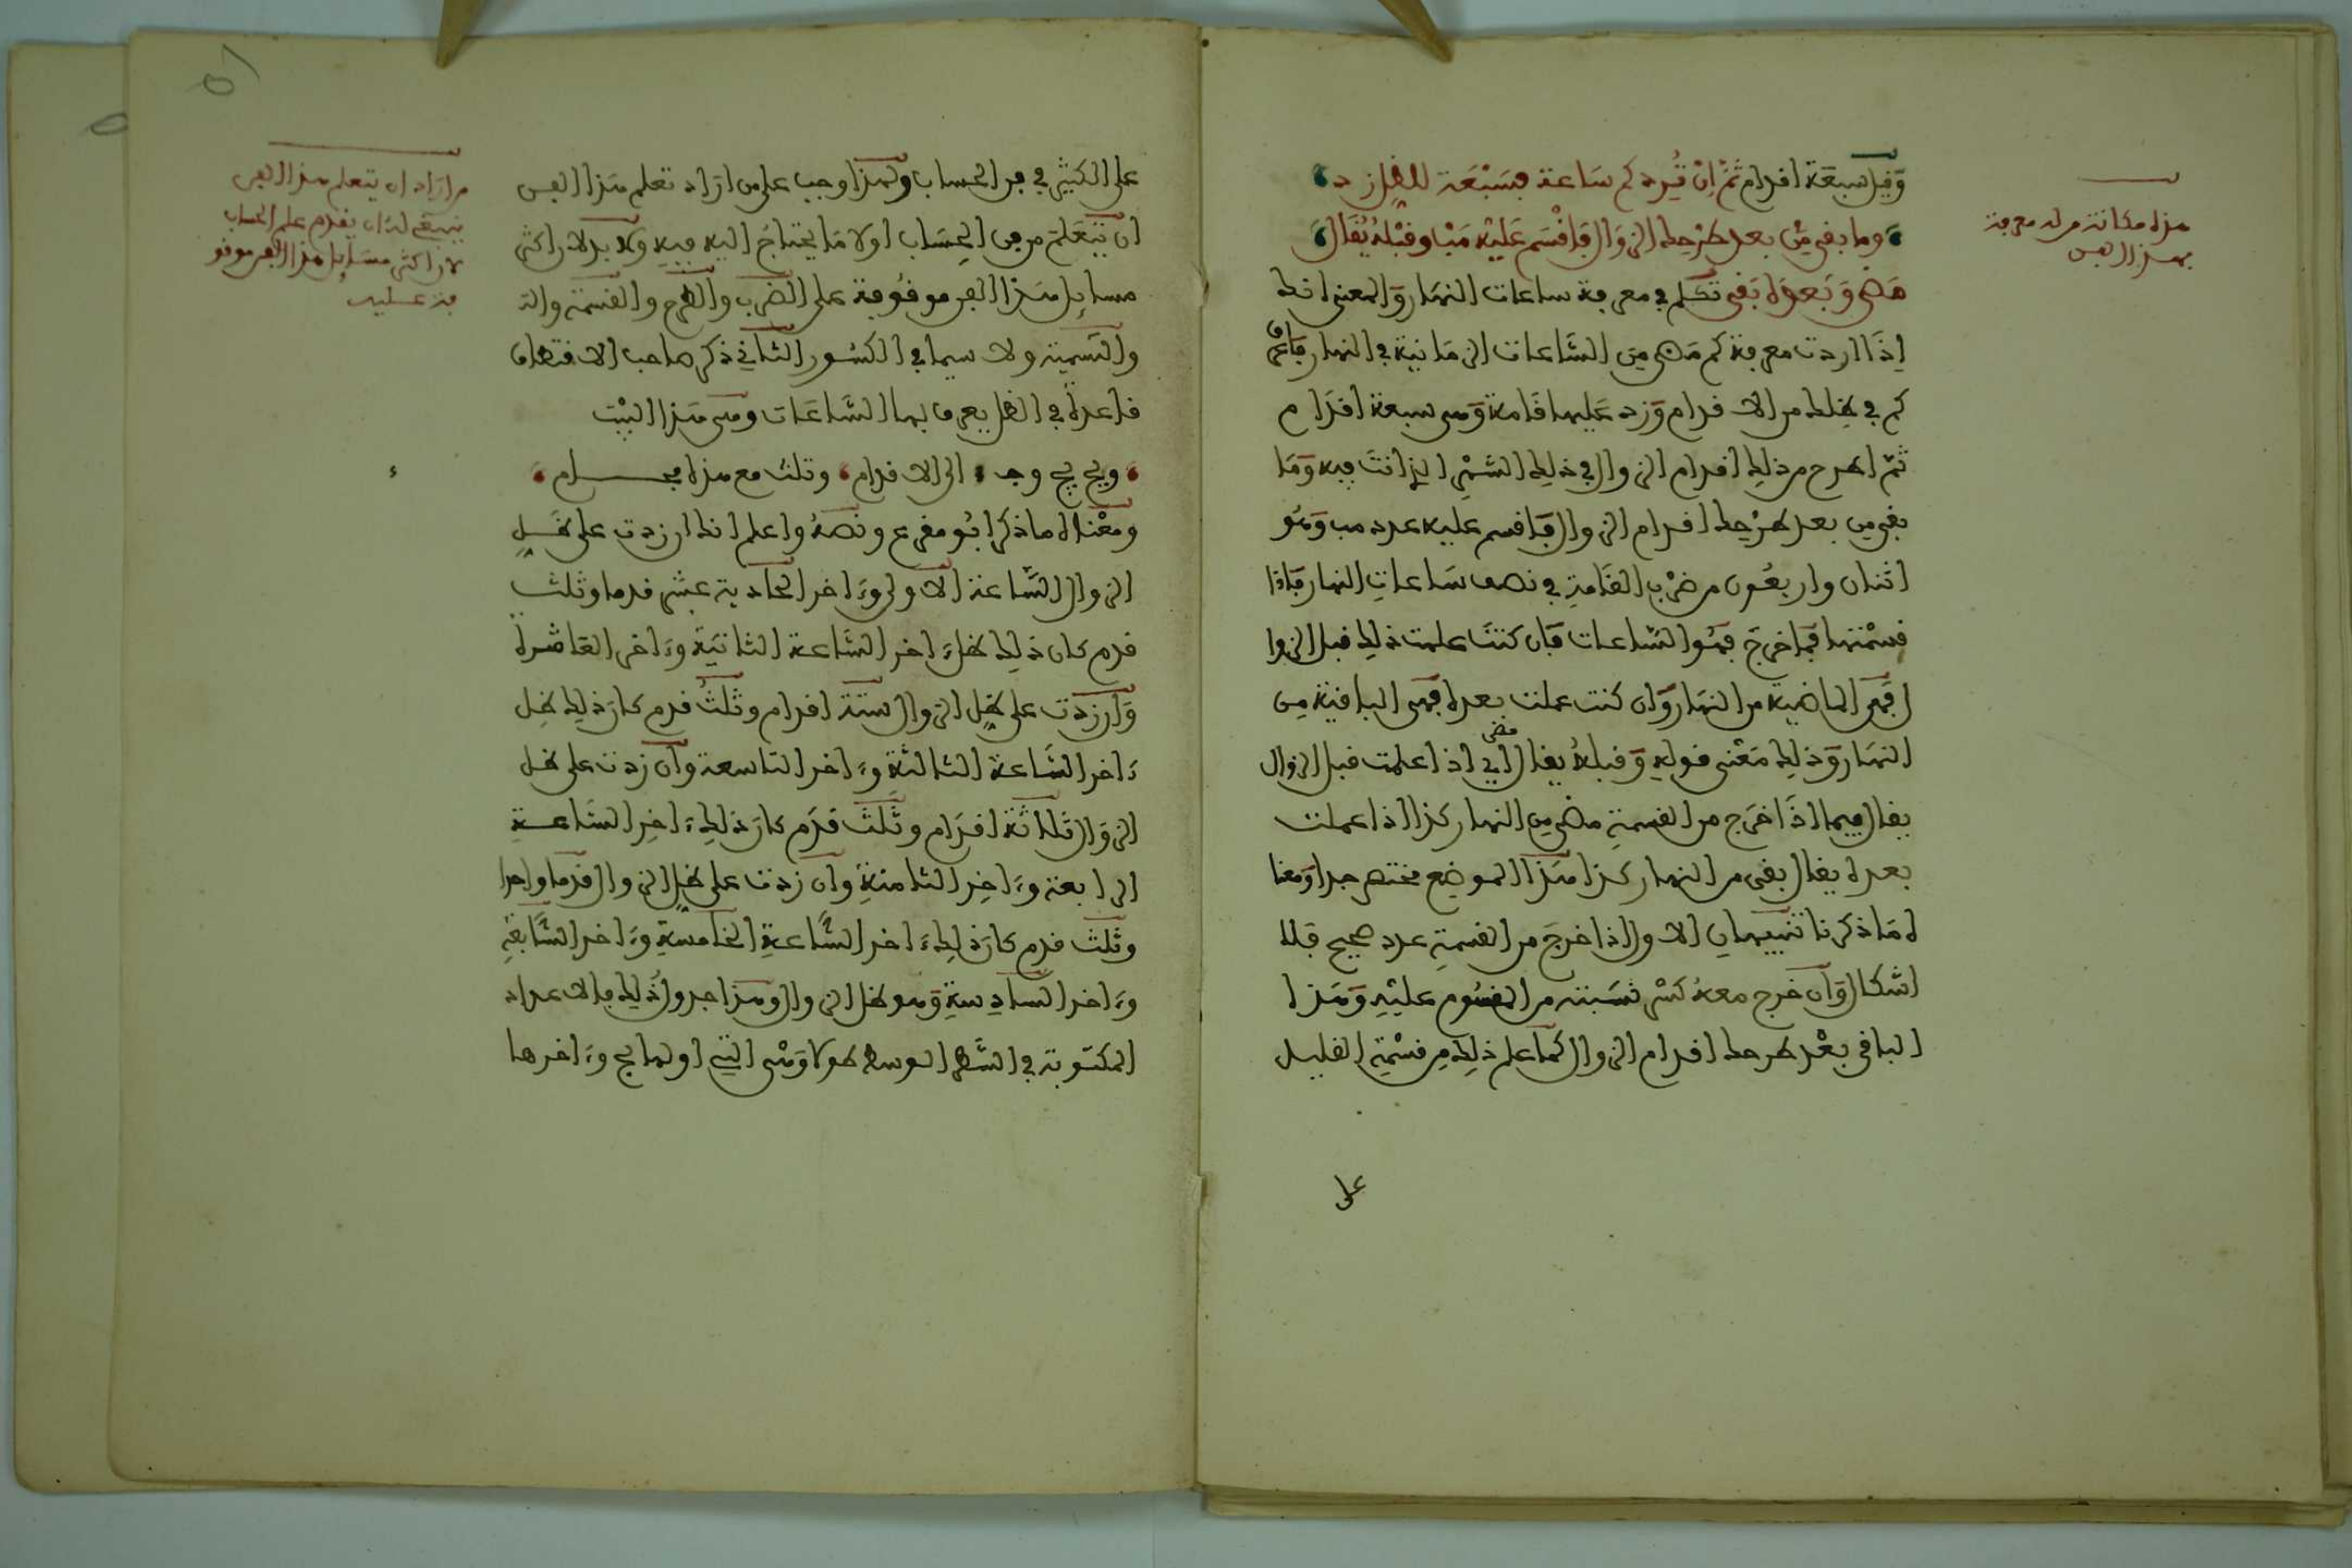 وقيل سبعة اقدام ثم ان ترد كم ساعة فسبعة للظل زد
وما بقى من بعد طرحك الزوال فاقسم عليه مب وقبله يقال
مضى وبعده بقى تكلم في معرفة ساعات النهار والمعنى انك
اذا اردت معرفة كم مضى من الساعات الزمانية في النهار فاعرف
كم في ظلك من الاقدام وزد عليها قامة وهى سبعة اقدام
ثم اطرح من ذلك اقدام الزوال في ذلك الشهر الذي انت فيه وما
بقى من بعد طرحك اقدام الزوال فاقسم عليه عدد مب وهو
اثنان واربعون من ضرب القامة في نصف ساعات النهار فاذا
قسمتها فما خرج فهو الساعات فان كنت علمت ذلك قبل الزوا
ل فهى الماضية من النهار وان كنت عملت بعده فهى الباقية من
النهار وذلك معنى قوله وقبله يقال مضى اي اذا علمت قبل الزوال
يقال فيما اذا خرج من القسمة مضى من النهار كذا اذا عملت
بعده يقال بقى من النهار كذا هذا الموضع مختصر جدا ومعنا
ه ما ذكرنا تنبيهان الاول اذا خرج من القسمة عدد صحيح فلا
اشكال وان خرج معه كسر نسبته من المقسوم عليه وهذا
الباقى بعد طرحك اقدام الزوال كما علم ذلك من قسمة القليل
على
هذه مكانة من له معرفة
بهذا الفن
على الكثير في فن الحساب ولهذا وجب على من اراد تعلم هذا الفن
ان يتعلم من فن الحساب اولا ما يحتاج اليه فيه ولا بد لان اكثر
مسايل هذا الفن موقوفة على الضرب والطرح والقسمة والت
والتسمية ولا سيما في الكسور الثاني ذكر صاحب الاقتطاف
قاعدة في الظل يعرف بها الساعات وهى هذا البيت
ويج يج وجـ الى الاقدام وثلث مع هذه مجـــرام
ومعناه ما ذكر ابو مقرع ونصه واعلم انك ان زدت على ظل
الزوال الساعة الاولى وءاخر الحادية عشر قدما وثلث
قدم كان ذلك ظل ءاخر الساعة الثانية وءاخر العاشرة
وان زدت على ظل الزوال ستة اقدام وثلث قدم كان ذلك ظل
ءاخر الساعة الثالثة وءاخر التاسعة وان زدت على ظل
الزوال ثلاثة اقدام وثلث قدم كان ذلك ءاخر الساعة
الرابعة وءاخر الثامنة وان زدت على ظل الزوال قدما واحدا
وثلث قدم كان ذلك ءاخر الساعة الخامسة وءاخر السابعة
وءاخر السادسة وهو ظل الزوال وهذا جدول ذلك بالاعداد
المكتوبة في السطر الوسط طولا وهى التي اولها يج وءاخرها
من اراد ان يتعلم هذا الفن
ينبغى له ان يقدم علم الحساب
لان اكثر مسايل هذا الفن موقو
فة عليه